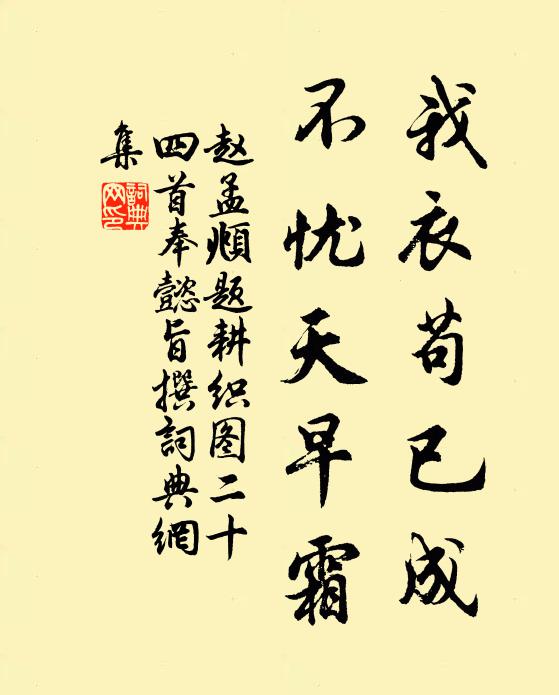 我衣苟已成
不忧天早霜
赵孟頫题耕织图二十
四首奉懿旨撰詞典網
集
詞典
网印